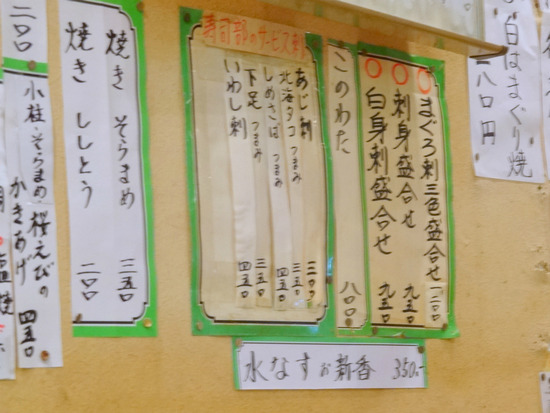 白はまぐり焼
八〇円
〇まぐろ刺三色盛合せ 一二〇〇
〇刺身盛合せ 九五〇
〇白身刺盛合せ 九五〇
このわた 八〇〇
寿司部のサービス刺
あじ刺
北海タコつまみ 三五〇
しめさばつまみ 四五〇
下足つまみ 三五〇
いわし刺 四五〇
水なすお新香 350.-
焼きそらまめ 三五〇
焼きししとう 二〇〇
桜えびの
小柱・そらまめ
かきあげ 四五〇
二〇〇
塩焼